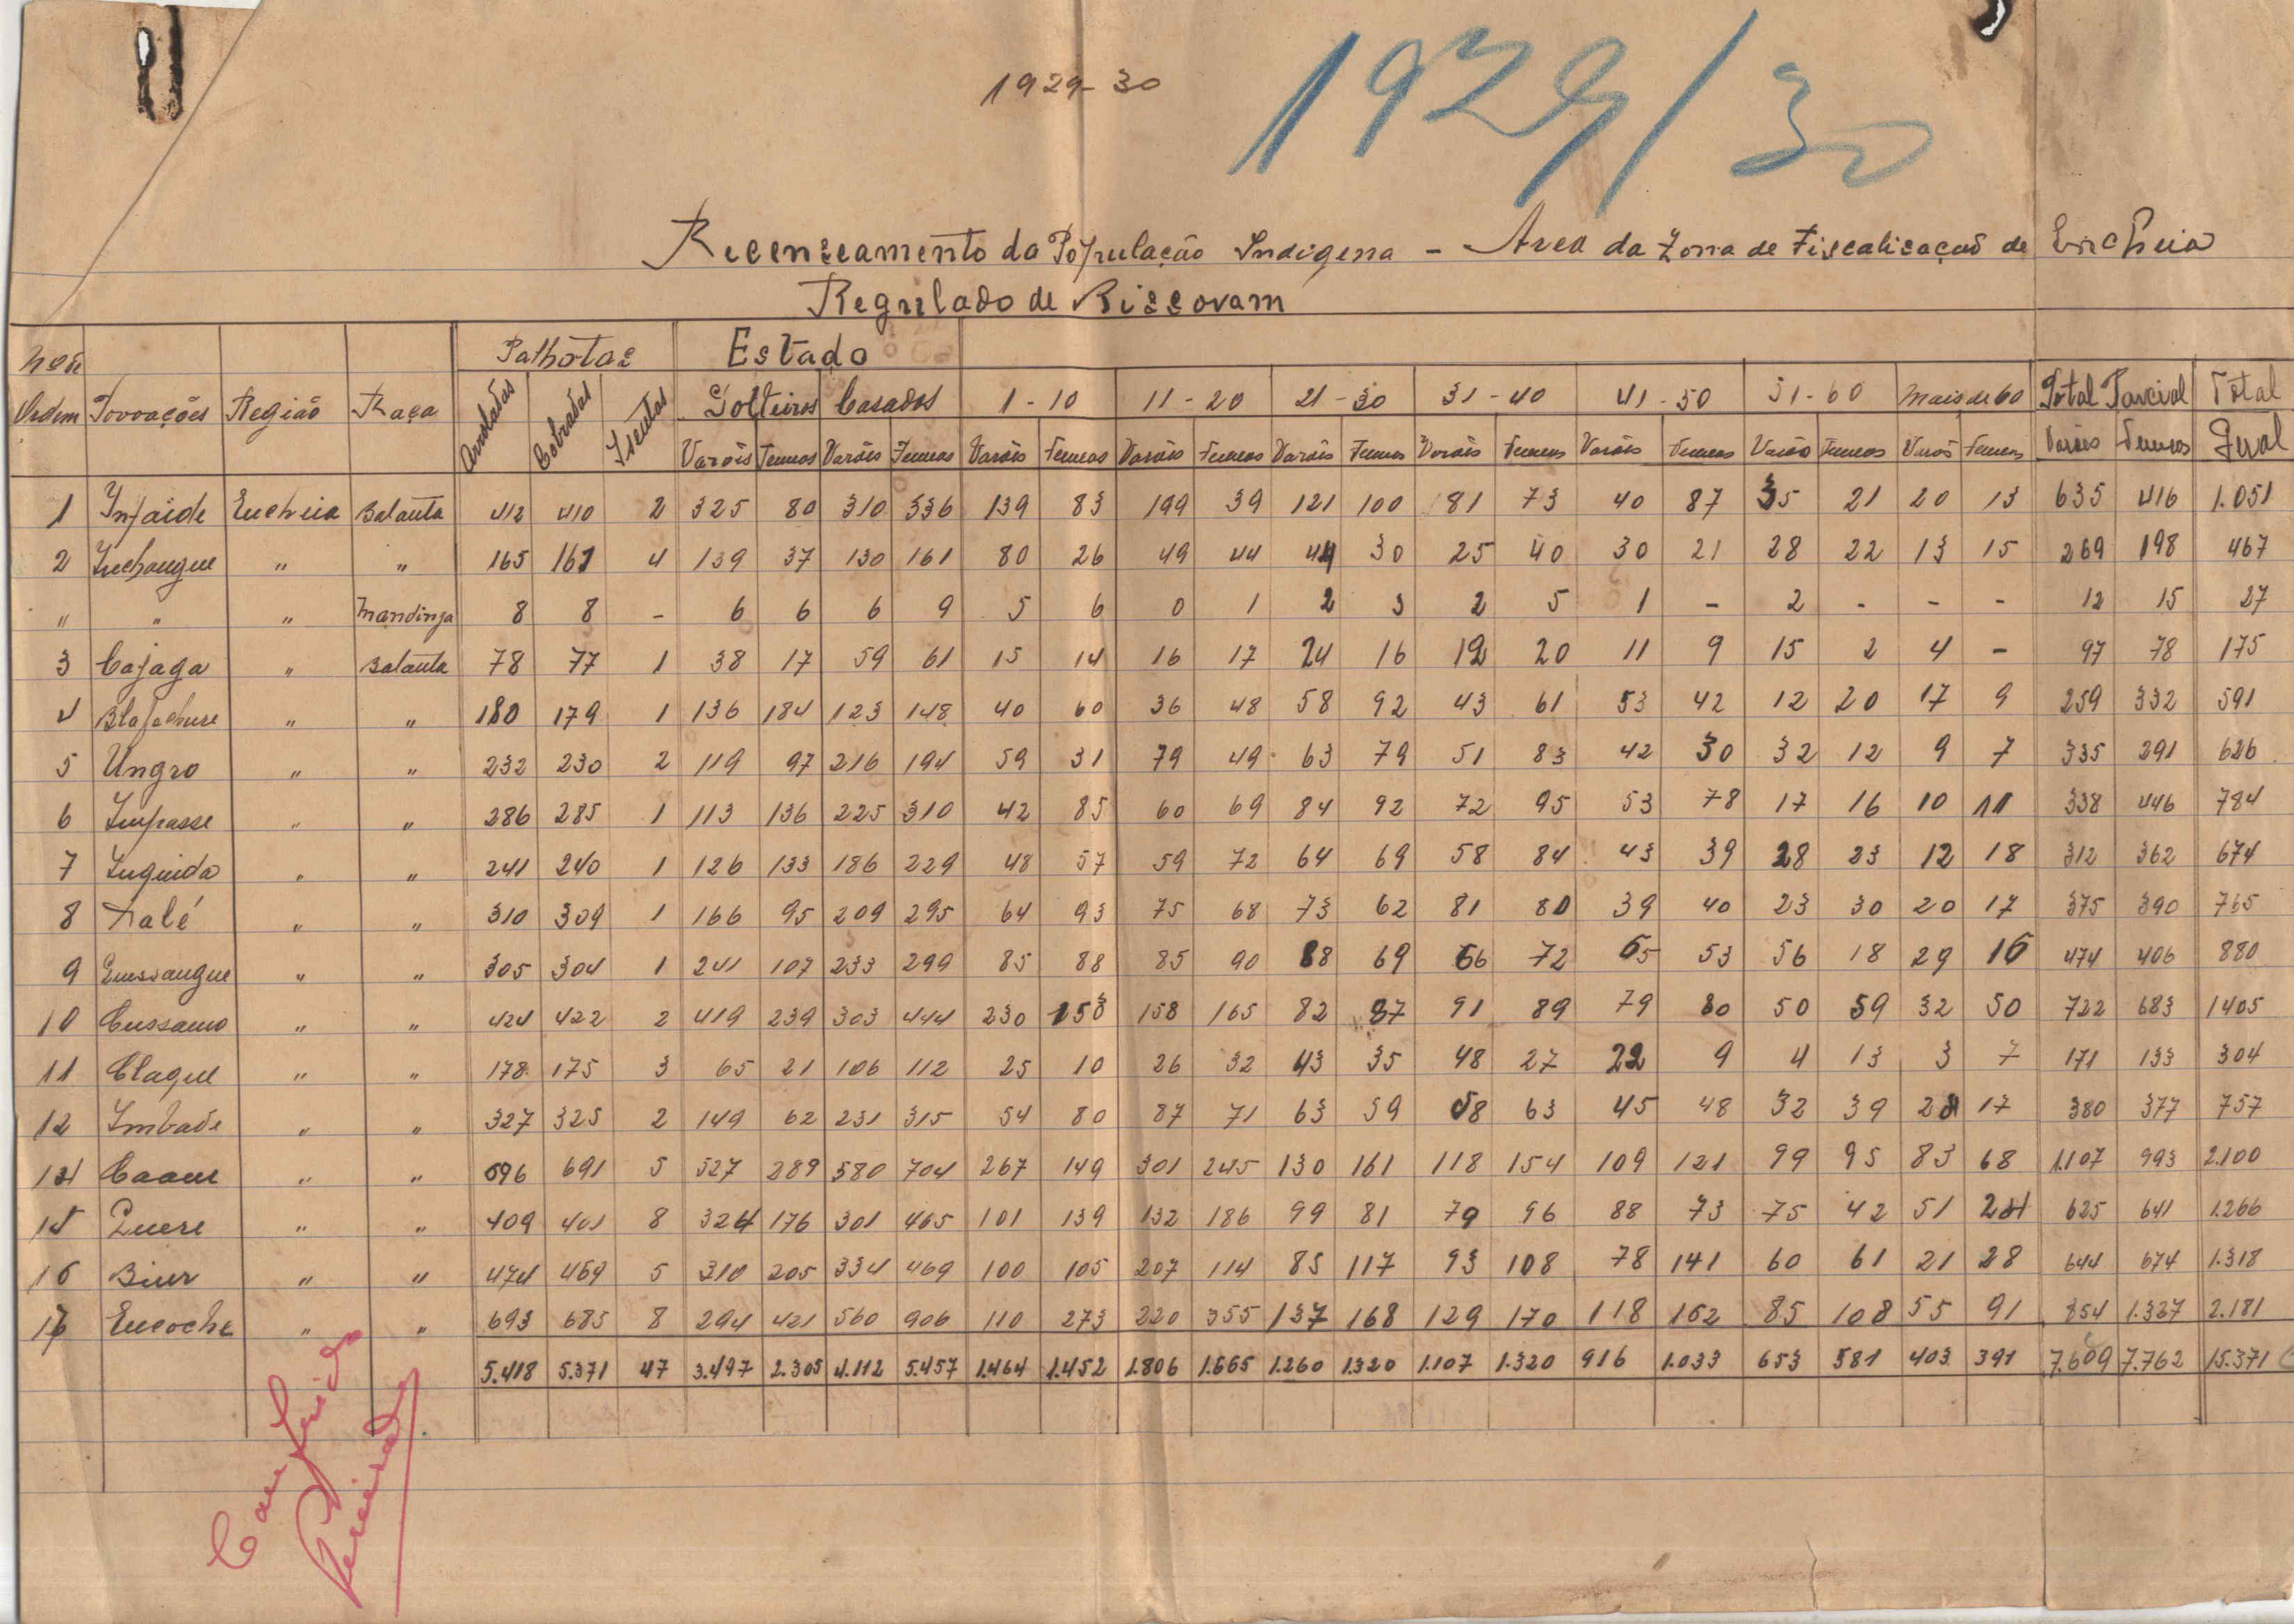 1929-30
1929/30
Recenseamento da População Indigena - Area da Zona de Fiscalisação de Encheia
Regulado de Bissovam
Nº de Ordem Povoações Região Raça Palhotas Estado
Arroladas Cobradas Isentas Solteiros Casados 1-10 11-20 21-30 31-40 41-50 51-60 Mais de 60 Total Parcial Total Geral
Varões Femeas Varões Femeas Varões Femeas Varões Femeas Varões Femeas Varões Femeas Varões Femeas Varões Femeas Varões Femeas Varões Femeas
1 Infaide Encheia Balanta 412 410 2 325 80 310 336 139 83 199 39 121 100 81 73 40 87 35 21 20 13 635 416 1.051
2 Inchangue " " 165 161 4 139 37 130 161 80 26 49 44 44 30 25 40 30 21 28 22 13 15 269 198 467
" " " Mandinga 8 8 - 6 6 6 9 5 6 0 1 2 3 2 5 1 - 2 - - - 12 15 27
3 Cajaga " Balanta 78 77 1 38 17 59 61 15 14 16 17 24 16 12 20 11 9 15 2 4 - 97 78 175
4 Blafachure " " 180 179 1 136 184 123 148 40 60 36 48 58 92 43 61 53 42 12 20 17 9 259 332 591
5 Ungro " " 232 230 2 119 97 216 194 59 31 79 49 63 79 51 83 42 30 32 12 9 7 335 291 626
6 Impasse " " 286 285 1 113 136 225 310 42 85 60 69 84 92 72 95 53 78 17 16 10 11 338 446 784
7 Inguida " " 241 240 1 126 133 186 229 48 57 59 72 64 69 58 84 43 39 28 23 12 18 312 362 674
8 Nalé " " 310 309 1 166 95 209 295 64 93 75 68 73 62 81 80 39 40 23 30 20 17 375 390 765
9 Quissangue " " 305 304 1 241 107 233 299 85 88 85 90 88 69 66 72 65 53 56 18 29 16 474 406 880
10 Cussamo " " 424 422 2 419 239 303 444 230 153 158 165 82 87 91 89 79 80 50 59 32 50 722 683 1405
11 Claque " " 178 175 3 65 21 106 112 25 10 26 32 43 35 48 27 22 9 4 13 3 7 171 133 304
12 Imbade " " 327 325 2 149 62 231 315 54 80 87 71 63 59 58 63 45 48 32 39 28 17 380 377 757
14 Caame " " 696 691 5 527 289 580 704 267 149 301 245 130 161 118 154 109 121 99 95 83 68 1.107 993 2.100
15 Quere " " 409 401 8 324 176 301 465 101 139 132 186 99 81 79 96 88 73 75 42 51 24 625 641 1.266
16 Biur " " 474 469 5 310 205 334 469 100 105 207 114 85 117 93 108 78 141 60 61 21 28 644 674 1.318
17 Encoche " " 693 685 8 294 421 560 906 110 273 220 355 137 168 129 170 118 162 85 108 55 91 854 1.327 2.181
5.418 5.371 47 3.497 2.305 4.112 5.457 1.464 1.452 1.806 1.665 1.260 1.320 1.107 1.320 916 1.033 653 581 403 391 7.609 7.762 15.371